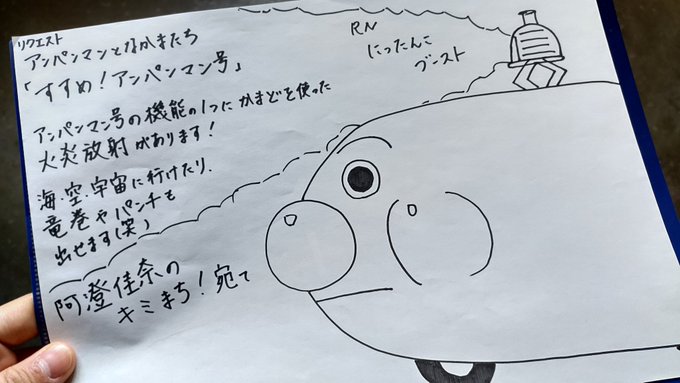 リクエスト
アンパンマンとなかまたち
「すすめ!アンパンマン号」
RN
にったんこ
ブースト
アンパンマン号の機能の1つにかまどを使った
火炎放射があります!
海・空・宇宙に行けたり、
竜巻やパンチも
出せます(笑)
阿澄佳奈の
キミまち!宛て